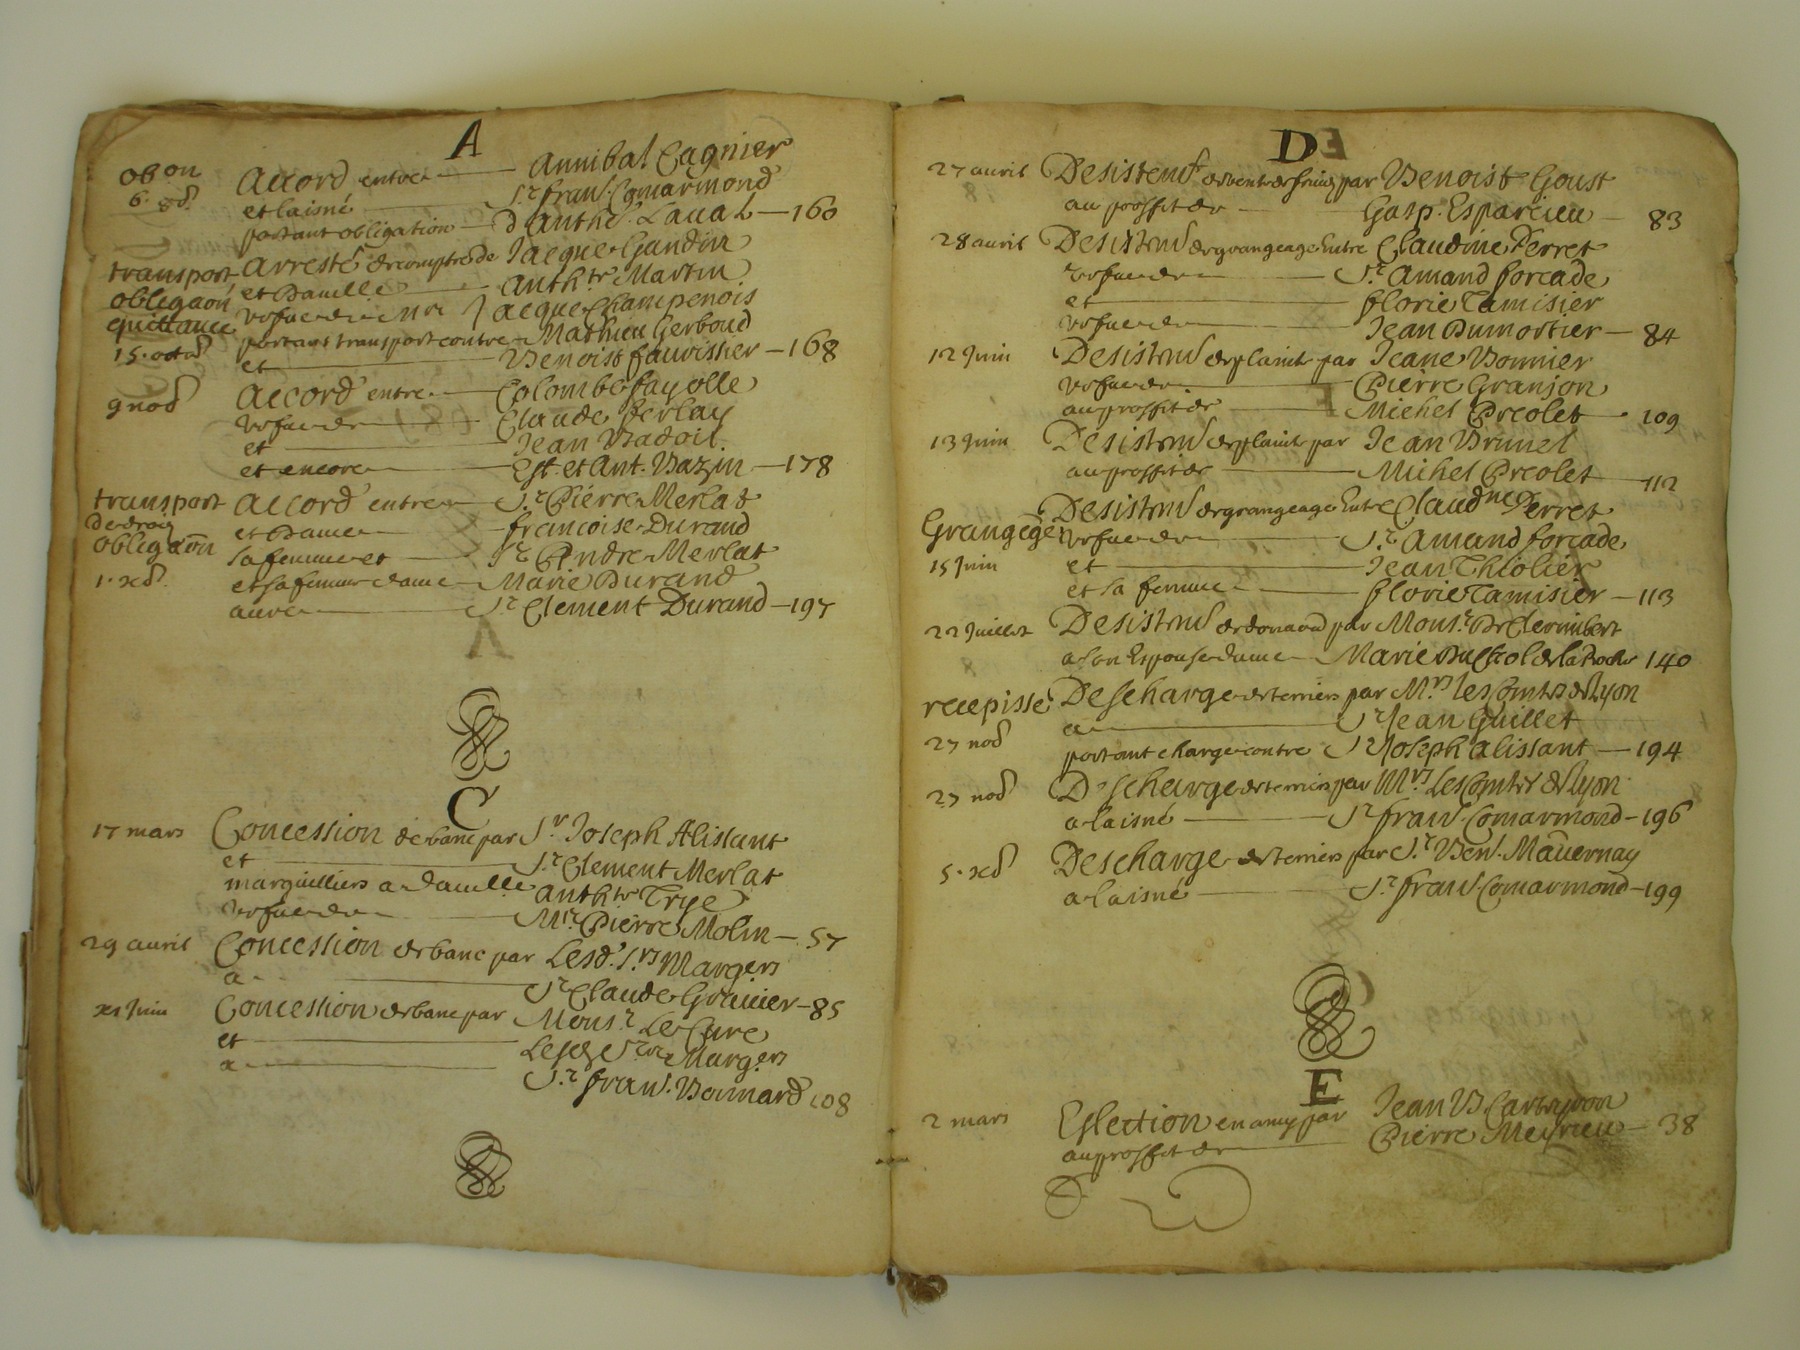 A
obon Accord entre Annibal Cagnier
6. 8d. et laisné Sr. fran. Comarmond
portant obligation d'Anthe. Laval — 160
transport Arresté de compte de Jacque Gaudin
obligaon et Danielle Anthr. Martin
quittance Jacque Champenois
portant transport contre Mathieu Gerboud
15. octod et Benoist fauvissier — 168
9 nod Accord entre Colombe fayolle
Claude ferlay
et Jean Badoil
et encore Est. et Ant. Bazin — 178
transport Accord entre Sr. Pierre Merlat
de droig et Dame francoise Durand
obligaon sa femme et Sr. Andre Merlat
1. xd. et sa femme dame Marie Durand
avec Sr. Clement Durand — 197
C
17 mars Concession de banc par Sr. Joseph Alissant
et Sr. Clement Merlat
marguilliers a Anthr Trye
Mr. Pierre Molin — 57
29 avril Concession de banc par Lesd. Srs Margers
a Sr Claude — 85
xi Juin Concession de banc par Monsr. Le Cure
et Margers
a Sr. fran. Bonnard 108
D
27 avril Desistemt de vente de par Benoist Goust
au proffit de Gasp. Esparcieu — 83
28 avril Desistmt de grangeage Entre Claudine Perret
Sr. Amand forcade
et florie Tamisier
Jean Dumortier — 84
12 Juin Desistmt de plainte par Jeane Bonnier
Pierre Granjon
au proffit de Michel Creolet 109
13 Juin Desistmt de plainte par Jean Brunel
au proffit de Michel Creolet 112
Desistmt de grangeage Entre Claudne Perret
Sr. Amand forcade
15 Juin et Jean Thiolier
et sa femme florie Tamisier — 113
22 Juillet Desistmt de par Monsr.
a son Espouse dame Marie 140
recepisse Descharge de terriers par Mrs les Comtes de Lyon
a Sr Jean Guillet
27 nod portant charge contre Sr Joseph Alissant — 194
27 nod Descharge de terriers par Mrs Les Comtes de Lyon
a laisné Sr fran. Comarmond — 196
5. xd Descharge de terriers par Sr. Ben. Mauvernay
a laisné Sr. fran. Comarmond — 199
E
2 mars Eslection en amy par Jean B.
au proffit de Pierre Meyrieu — 38